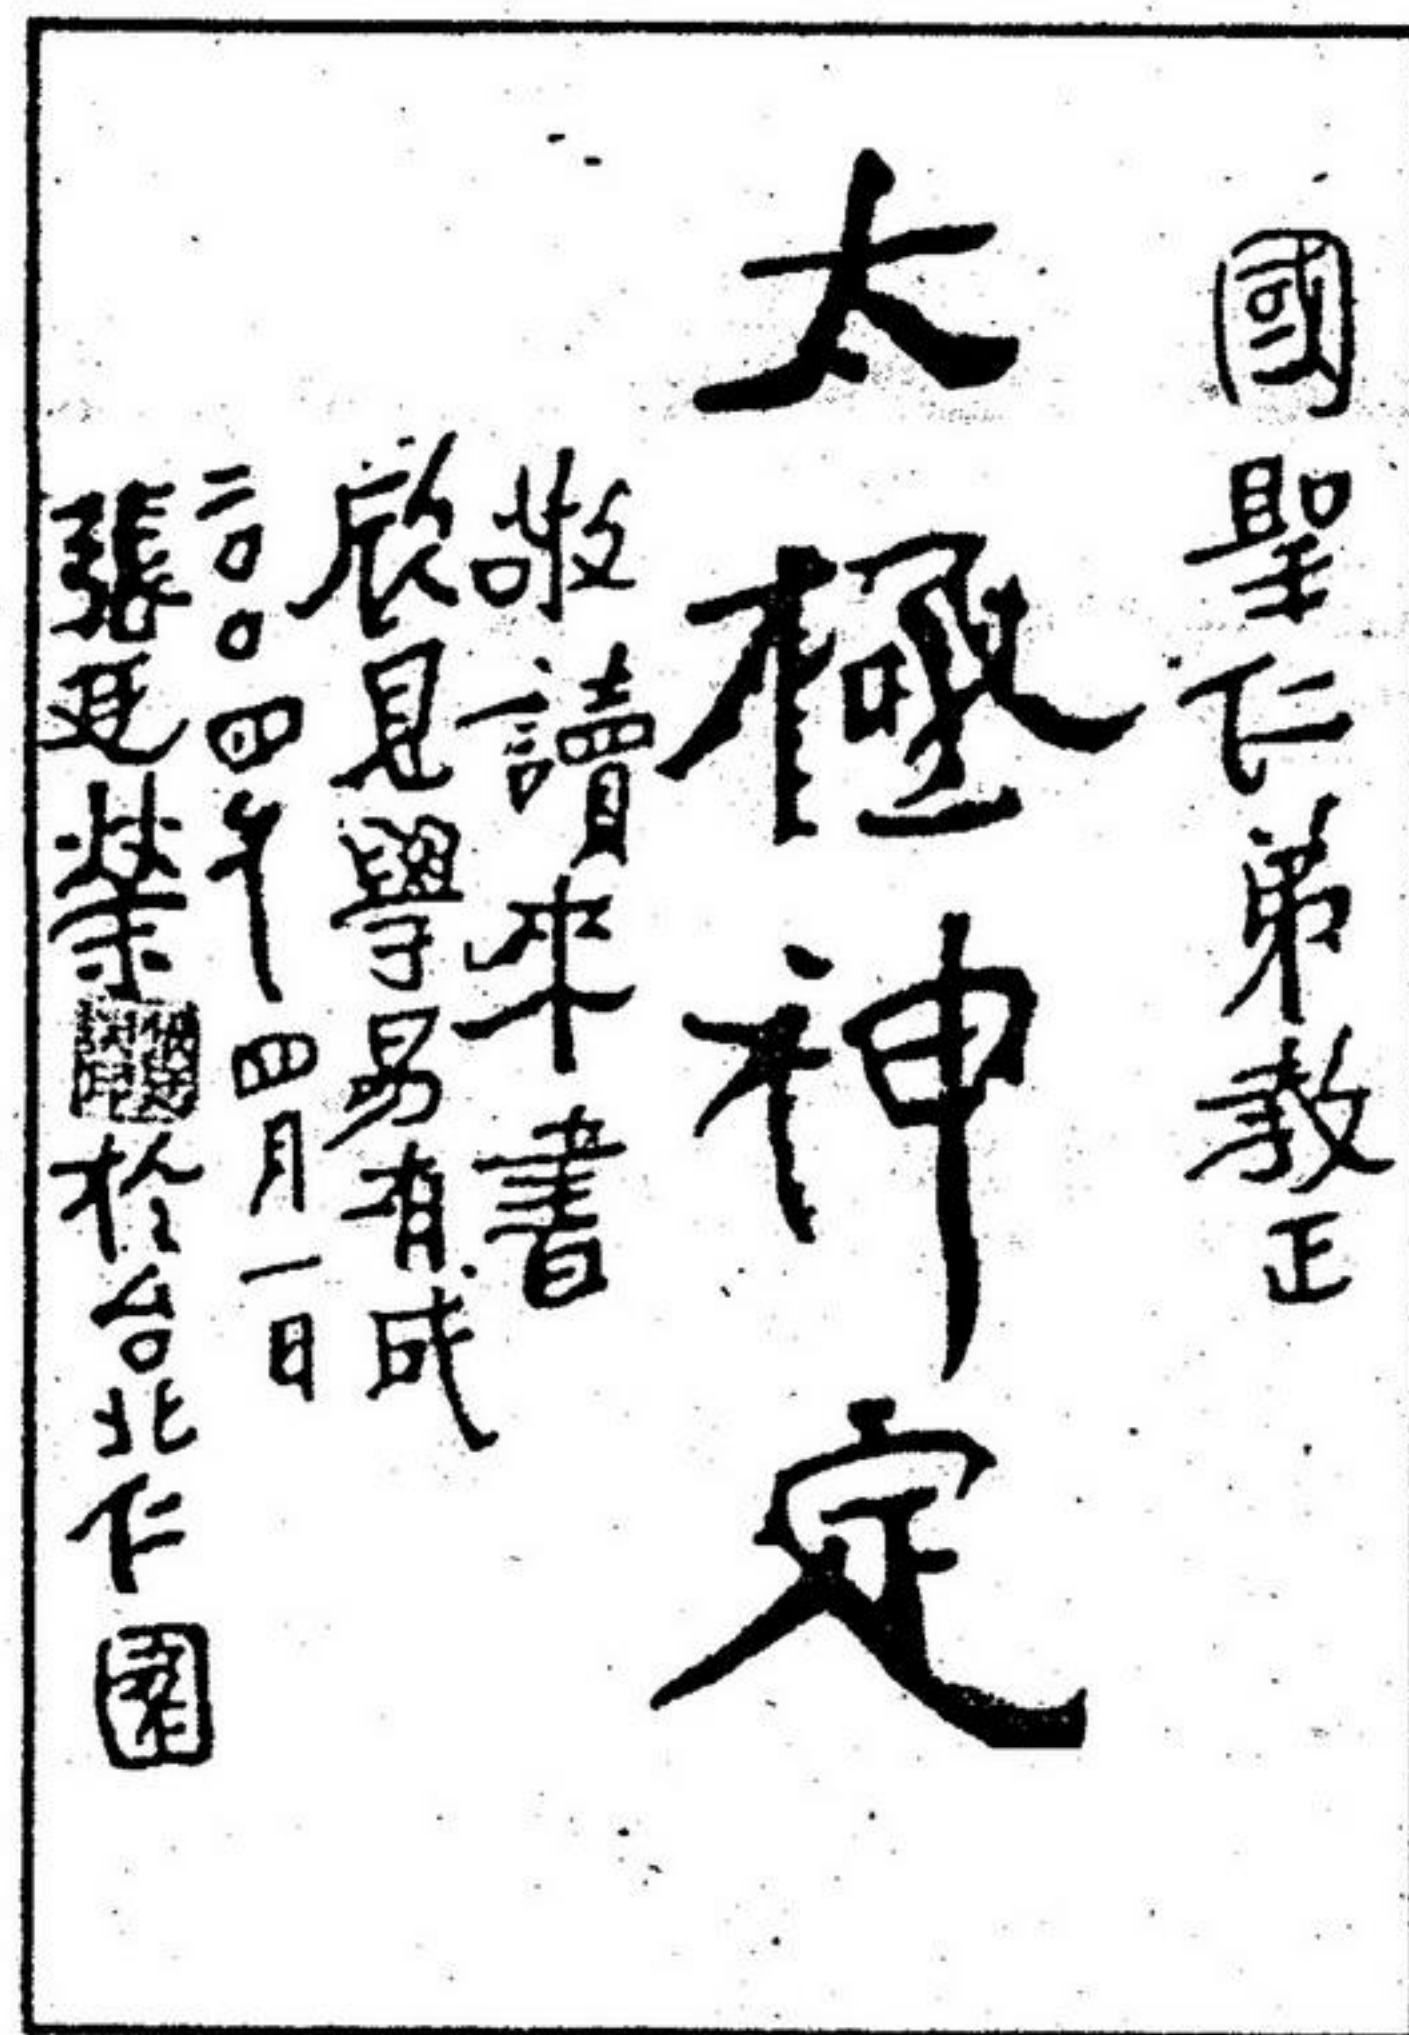 國聖仁弟教正
太極神定
敬讀來書
欣見學易有成
二〇〇四年四月一日
張廷榮 於台北仁園